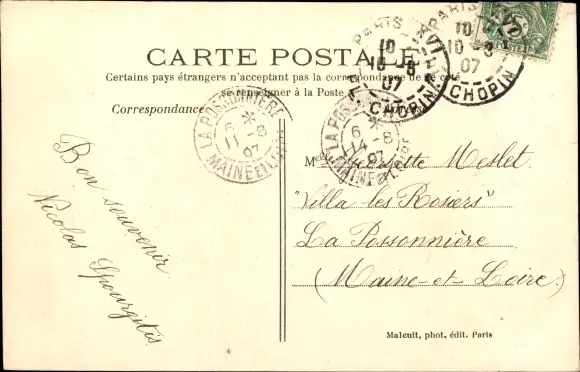 CARTE POSTALE
Certains pays étrangers n'acceptant pas la correspondance de ce côté
se renseigner à la Poste
Correspondance
PARIS XVI
10
10-8
07
CHOPIN
PARIS XVI
10
10-8
07
CHOPIN
LA POSSONNIÈRE
6
11-8
07
MAINE ET LOIRE
LA POSSONNIÈRE
6
14-8
07
MAINE ET LOIRE
Bon souvenir
Nicolas
Meslet
"Villa les Rosiers"
La Possonnière
(Maine-et-Loire)
Malcuit, phot. édit. Paris